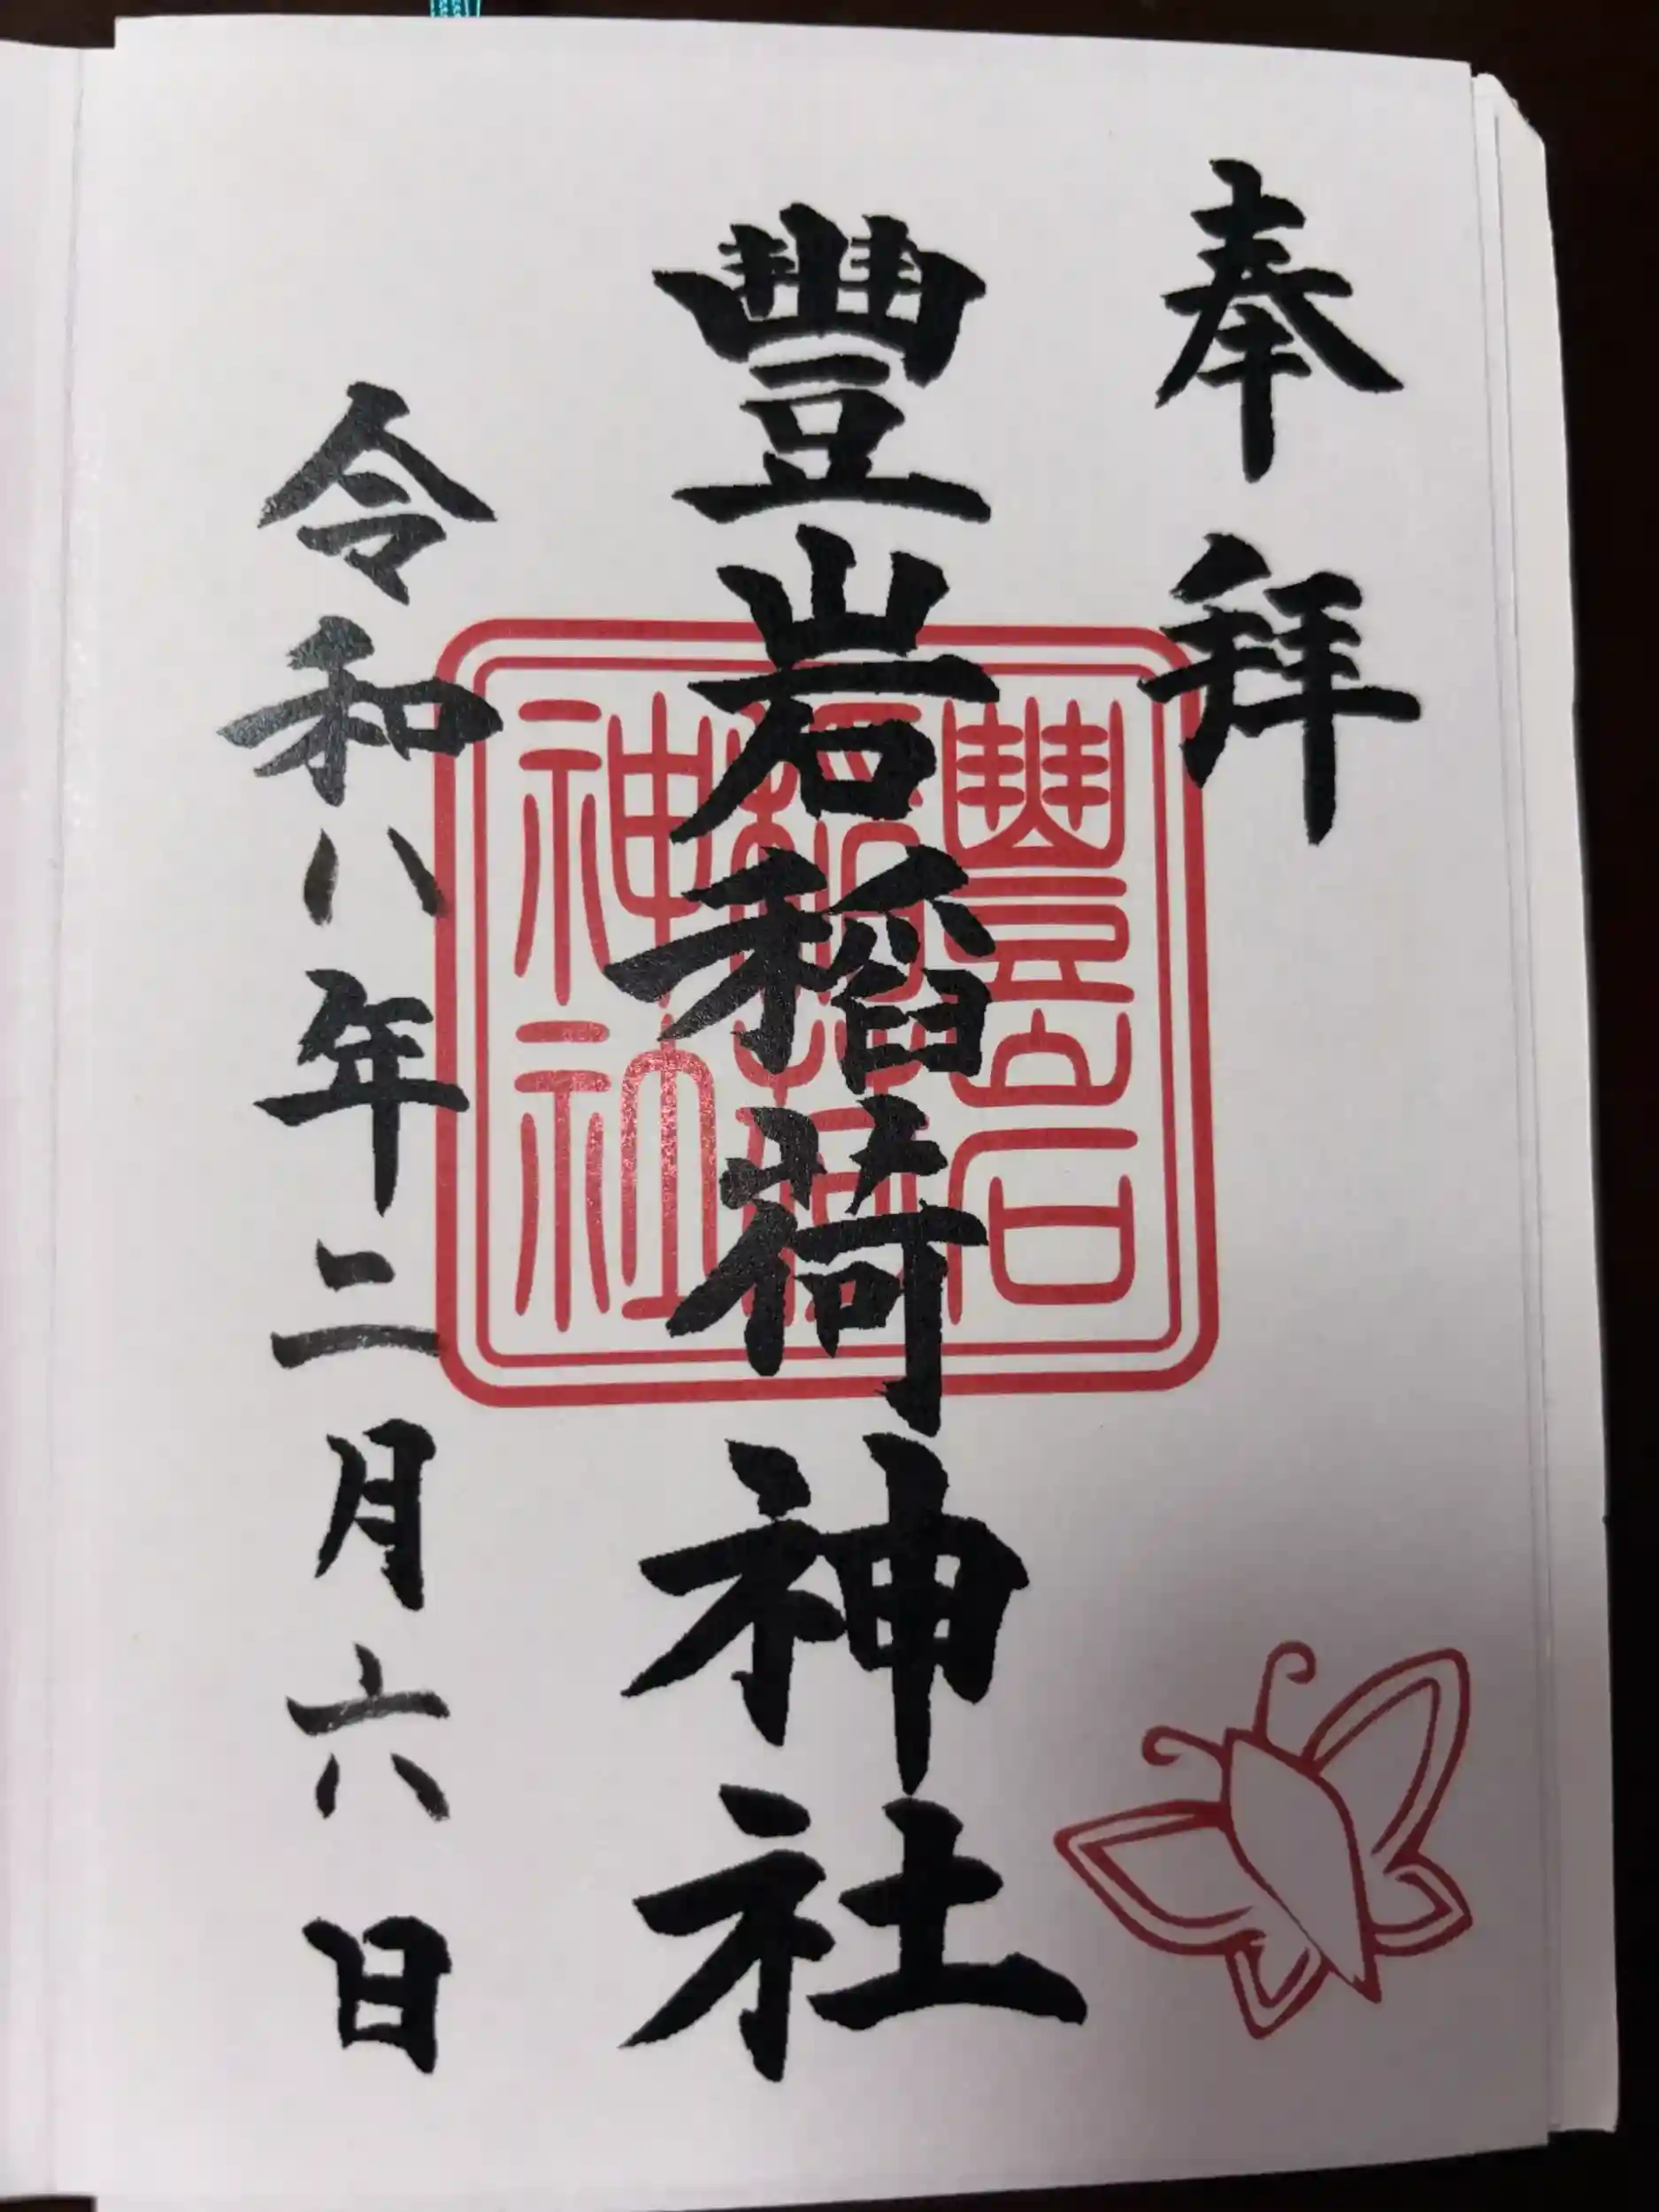 奉拝
豊岩稲荷神社
令和八年二月六日
豐岩
稲荷
神社